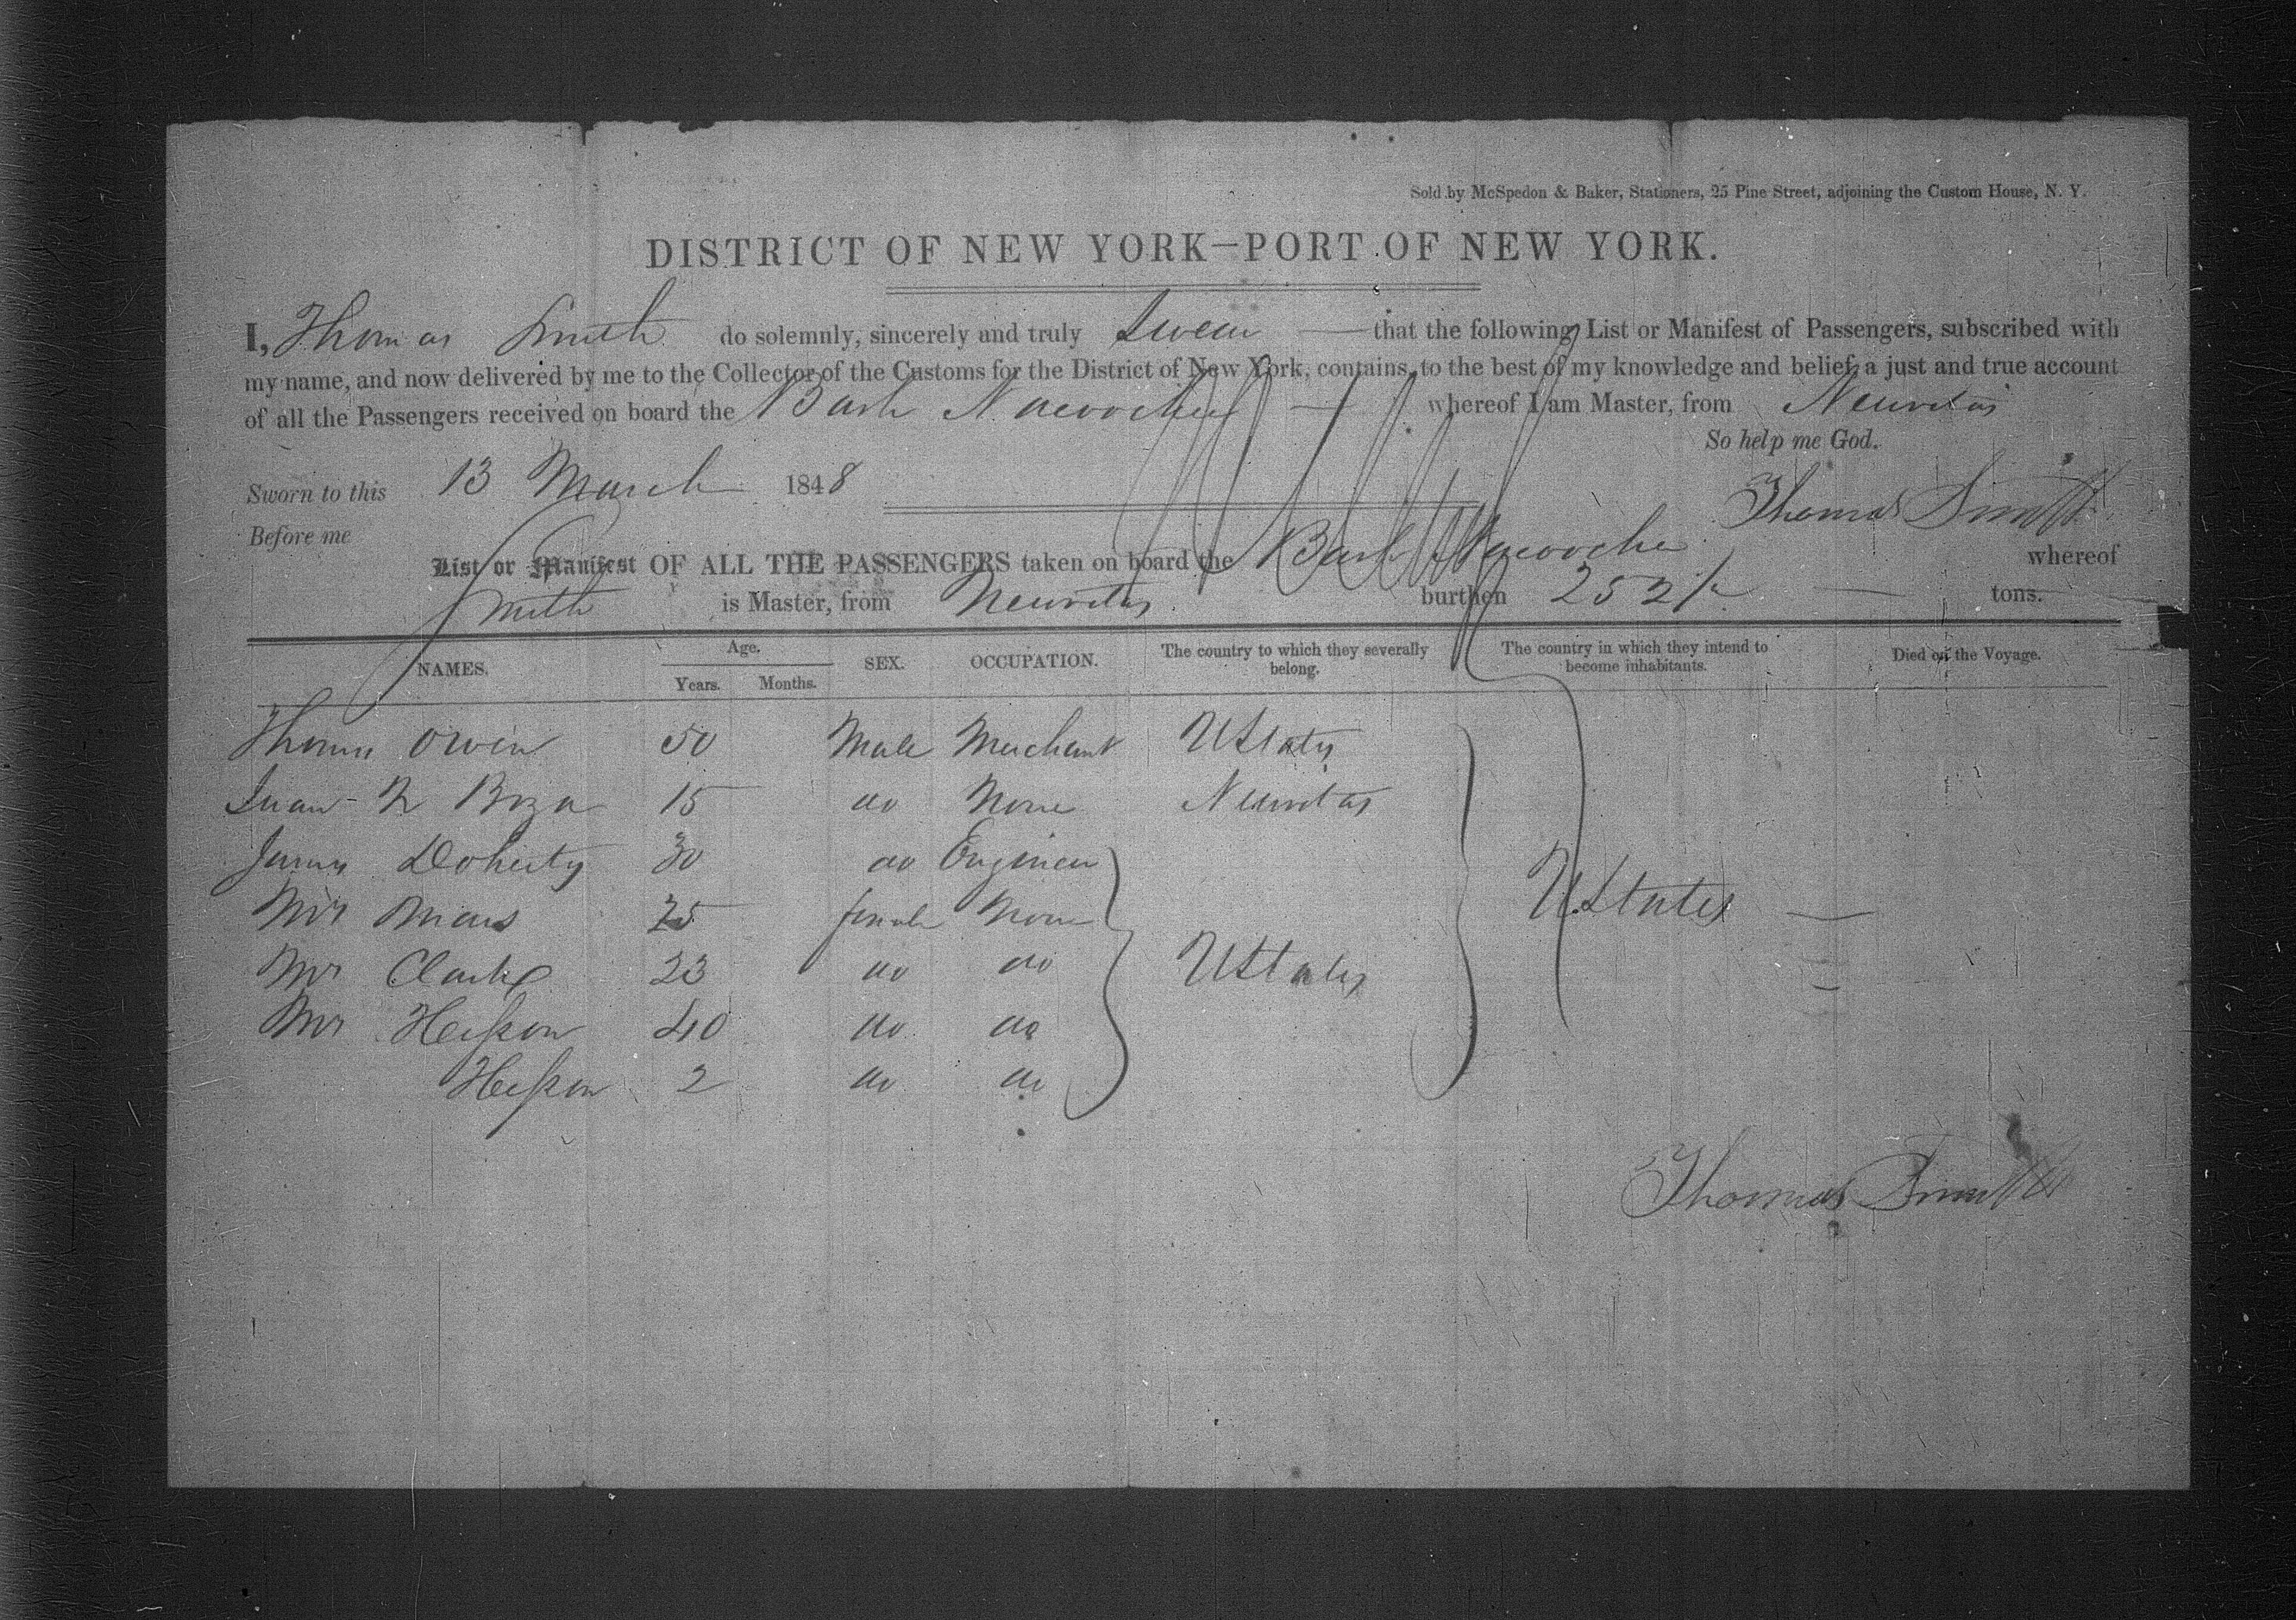 Sold by McSpedon & Baker, Stationers, 25 Pine Street, adjoining the Custom House, N. Y.
DISTRICT OF NEW YORK—PORT OF NEW YORK.
I, Thomas Smith do solemnly, sincerely and truly Swear — that the following List or Manifest of Passengers, subscribed with
my name, and now delivered by me to the Collector of the Customs for the District of New York, contains, to the best of my knowledge and belief, a just and true account
of all the Passengers received on board the Bark Nacoochee — whereof I am Master, from Neuvitas
So help me God.
Sworn to this 13 March 1848
Thomas Smith
Before me
List or Manifest OF ALL THE PASSENGERS taken on board the Bark Nacoochee whereof
Smith is Master, from Neuvitas burthen 252 tons.
NAMES. Age. Years. Months. SEX. OCCUPATION. The country to which they severally belong. The country in which they intend to become inhabitants. Died on the Voyage.
Thomas Owen 50 Male Merchant U States
Juan N Boza 15 do None Neuvitas
James Doherty 30 do Engineer
Mrs 25 female None U.States —
Mrs Clarke 23 do do U States
Mrs 40 do do
2 do do
Thomas Smith